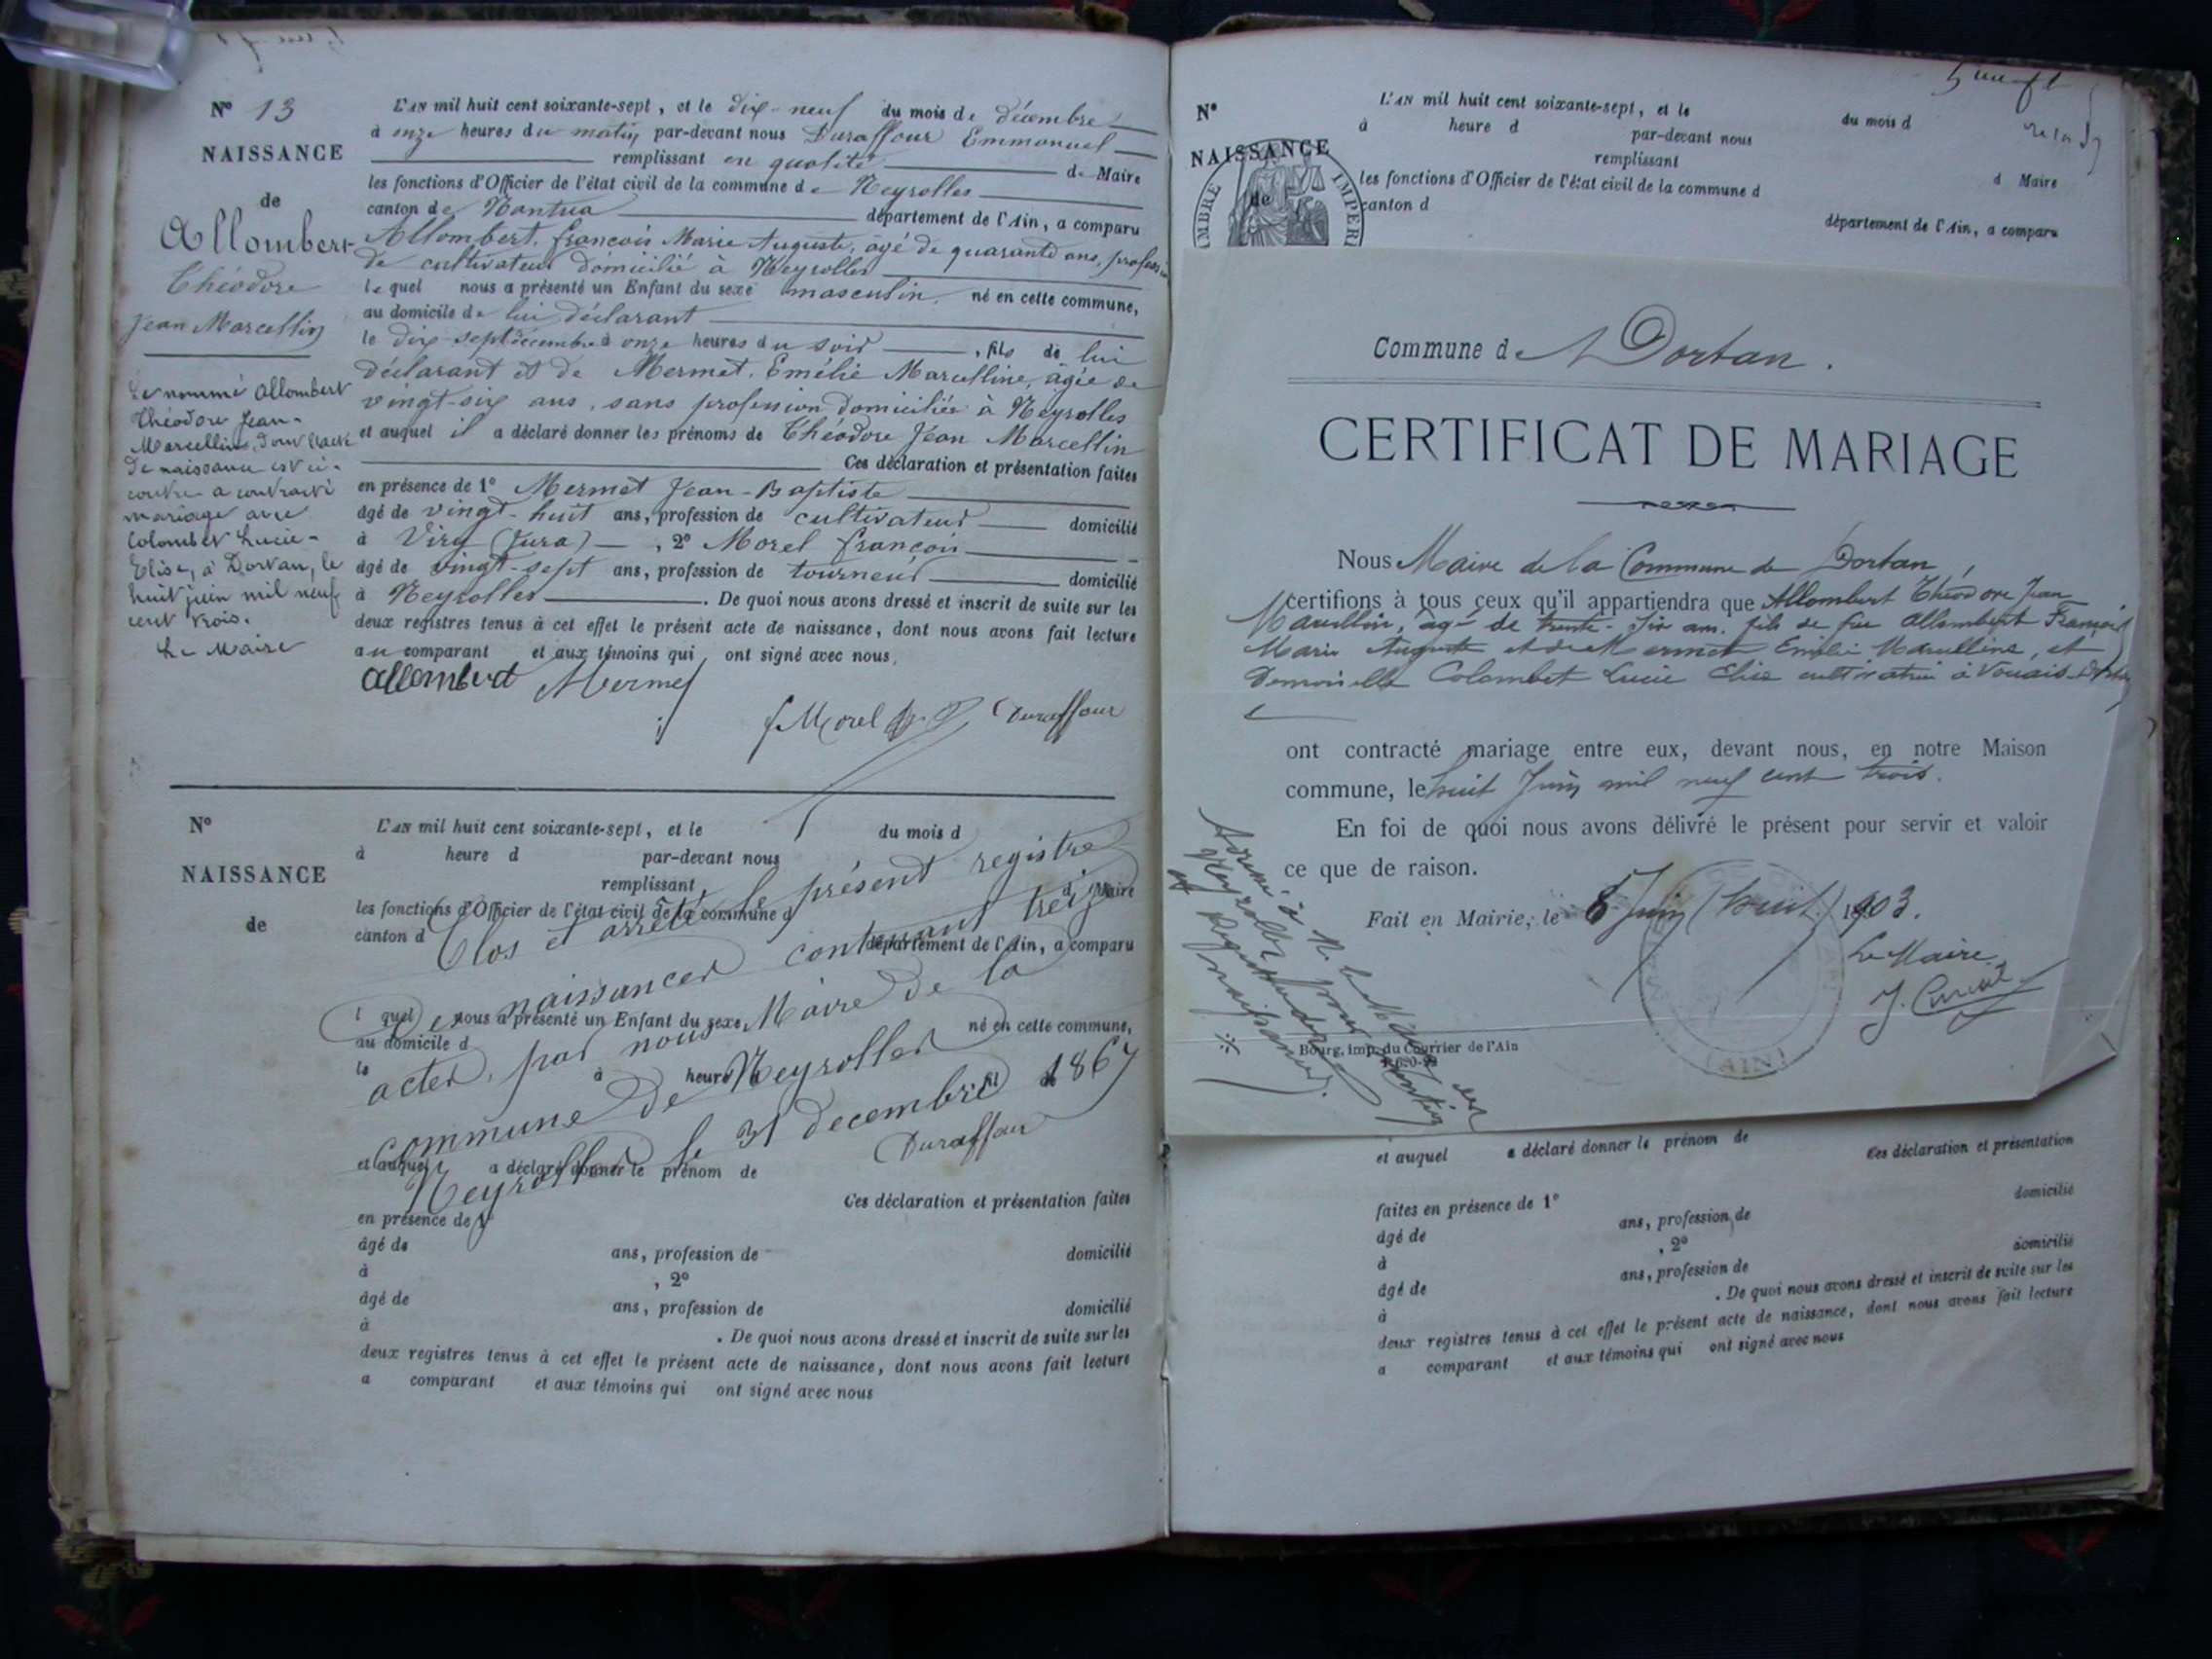 N° 13
NAISSANCE
de
Allombert
Théodore
Jean Marcellin
Le nommé Allombert
Théodore Jean-
Marcellin, dont l'acte
de naissance est ci-
contre a contracté
mariage avec
Colombet Lucie-
Elise, à Dortan, le
huit juin mil neuf
cent trois.
Le Maire
L'AN mil huit cent soixante-sept, et le dix-neuf du mois de décembre
à onze heures du matin par-devant nous Duraffour Emmanuel
remplissant en qualité de Maire
les fonctions d'Officier de l'état civil de la commune de Neyrolles
canton de Nantua département de l'Ain, a comparu
Allombert, françois Marie Auguste, âgé de quarante ans, profession
de cultivateur domicilié à Neyrolles
lequel nous a présenté un Enfant du sexe masculin, né en cette commune,
au domicile de lui déclarant
le dix-sept décembre à onze heures du soir, fils de lui
déclarant et de Mermet, Emélie Marcelline, âgée de
vingt-six ans, sans profession domiciliée à Neyrolles
et auquel il a déclaré donner les prénoms de Théodore Jean Marcellin
Ces déclaration et présentation faites
en présence de 1° Mermet Jean-Baptiste
âgé de vingt-huit ans, profession de cultivateur domicilié
à Viry (Jura), 2° Morel françois
âgé de vingt-sept ans, profession de tourneur domicilié
à Neyrolles. De quoi nous avons dressé et inscrit de suite sur les
deux registres tenus à cet effet le présent acte de naissance, dont nous avons fait lecture
au comparant et aux témoins qui ont signé avec nous,
Allombert Mermet
f Morel Duraffour
N°
NAISSANCE
de
L'AN mil huit cent soixante-sept, et le du mois d
à heure d par-devant nous
remplissant d Maire
les fonctions d'Officier de l'état civil de la commune d
canton d département de l'Ain, a comparu
l quel nous a présenté un Enfant du sexe né en cette commune,
au domicile d
le à heure fil d
et auquel a déclaré donner le prénom de
Ces déclaration et présentation faites
en présence de 1°
âgé de ans, profession de domicilié
à , 2°
âgé de ans, profession de domicilié
à . De quoi nous avons dressé et inscrit de suite sur les
deux registres tenus à cet effet le présent acte de naissance, dont nous avons fait lecture
a comparant et aux témoins qui ont signé avec nous
Clos et arrêté le présent registre
des naissances contenant treize
actes, par nous Maire de la
commune de Neyrolles
Neyrolles le 31 decembre 1867
Duraffour
N°
NAISSANCE
de
TIMBRE IMPERI
L'AN mil huit cent soixante-sept, et le du mois d
à heure d par-devant nous
remplissant d Maire
les fonctions d'Officier de l'état civil de la commune d
canton d département de l'Ain, a comparu
Commune de Dortan.
CERTIFICAT DE MARIAGE
Nous Maire de la Commune de Dortan,
certifions à tous ceux qu'il appartiendra que Allombert Théodore Jean
Marcellin, âgé de trente-six ans, fils de feu Allombert François
Marie Auguste et de Mermet Emélie Marcelline, et
Demoiselle Colombet Lucie Elise cultivatrice à Vouais-Dortan
ont contracté mariage entre eux, devant nous, en notre Maison
commune, le huit Juin mil neuf cent trois.
En foi de quoi nous avons délivré le présent pour servir et valoir
ce que de raison.
Fait en Mairie, le 8 Juin (huit) 1903.
Le Maire
Adressé à M. le Maire de
Neyrolles pour mention
au Registre des
naissances.
Bourg, imp. du Courrier de l'Ain
(AIN)
et auquel a déclaré donner le prénom de
Ces déclaration et présentation
faites en présence de 1° domicilié
âgé de ans, profession de
à , 2° domicilié
âgé de ans, profession de
à . De quoi nous avons dressé et inscrit de suite sur les
deux registres tenus à cet effet le présent acte de naissance, dont nous avons fait lecture
a comparant et aux témoins qui ont signé avec nous